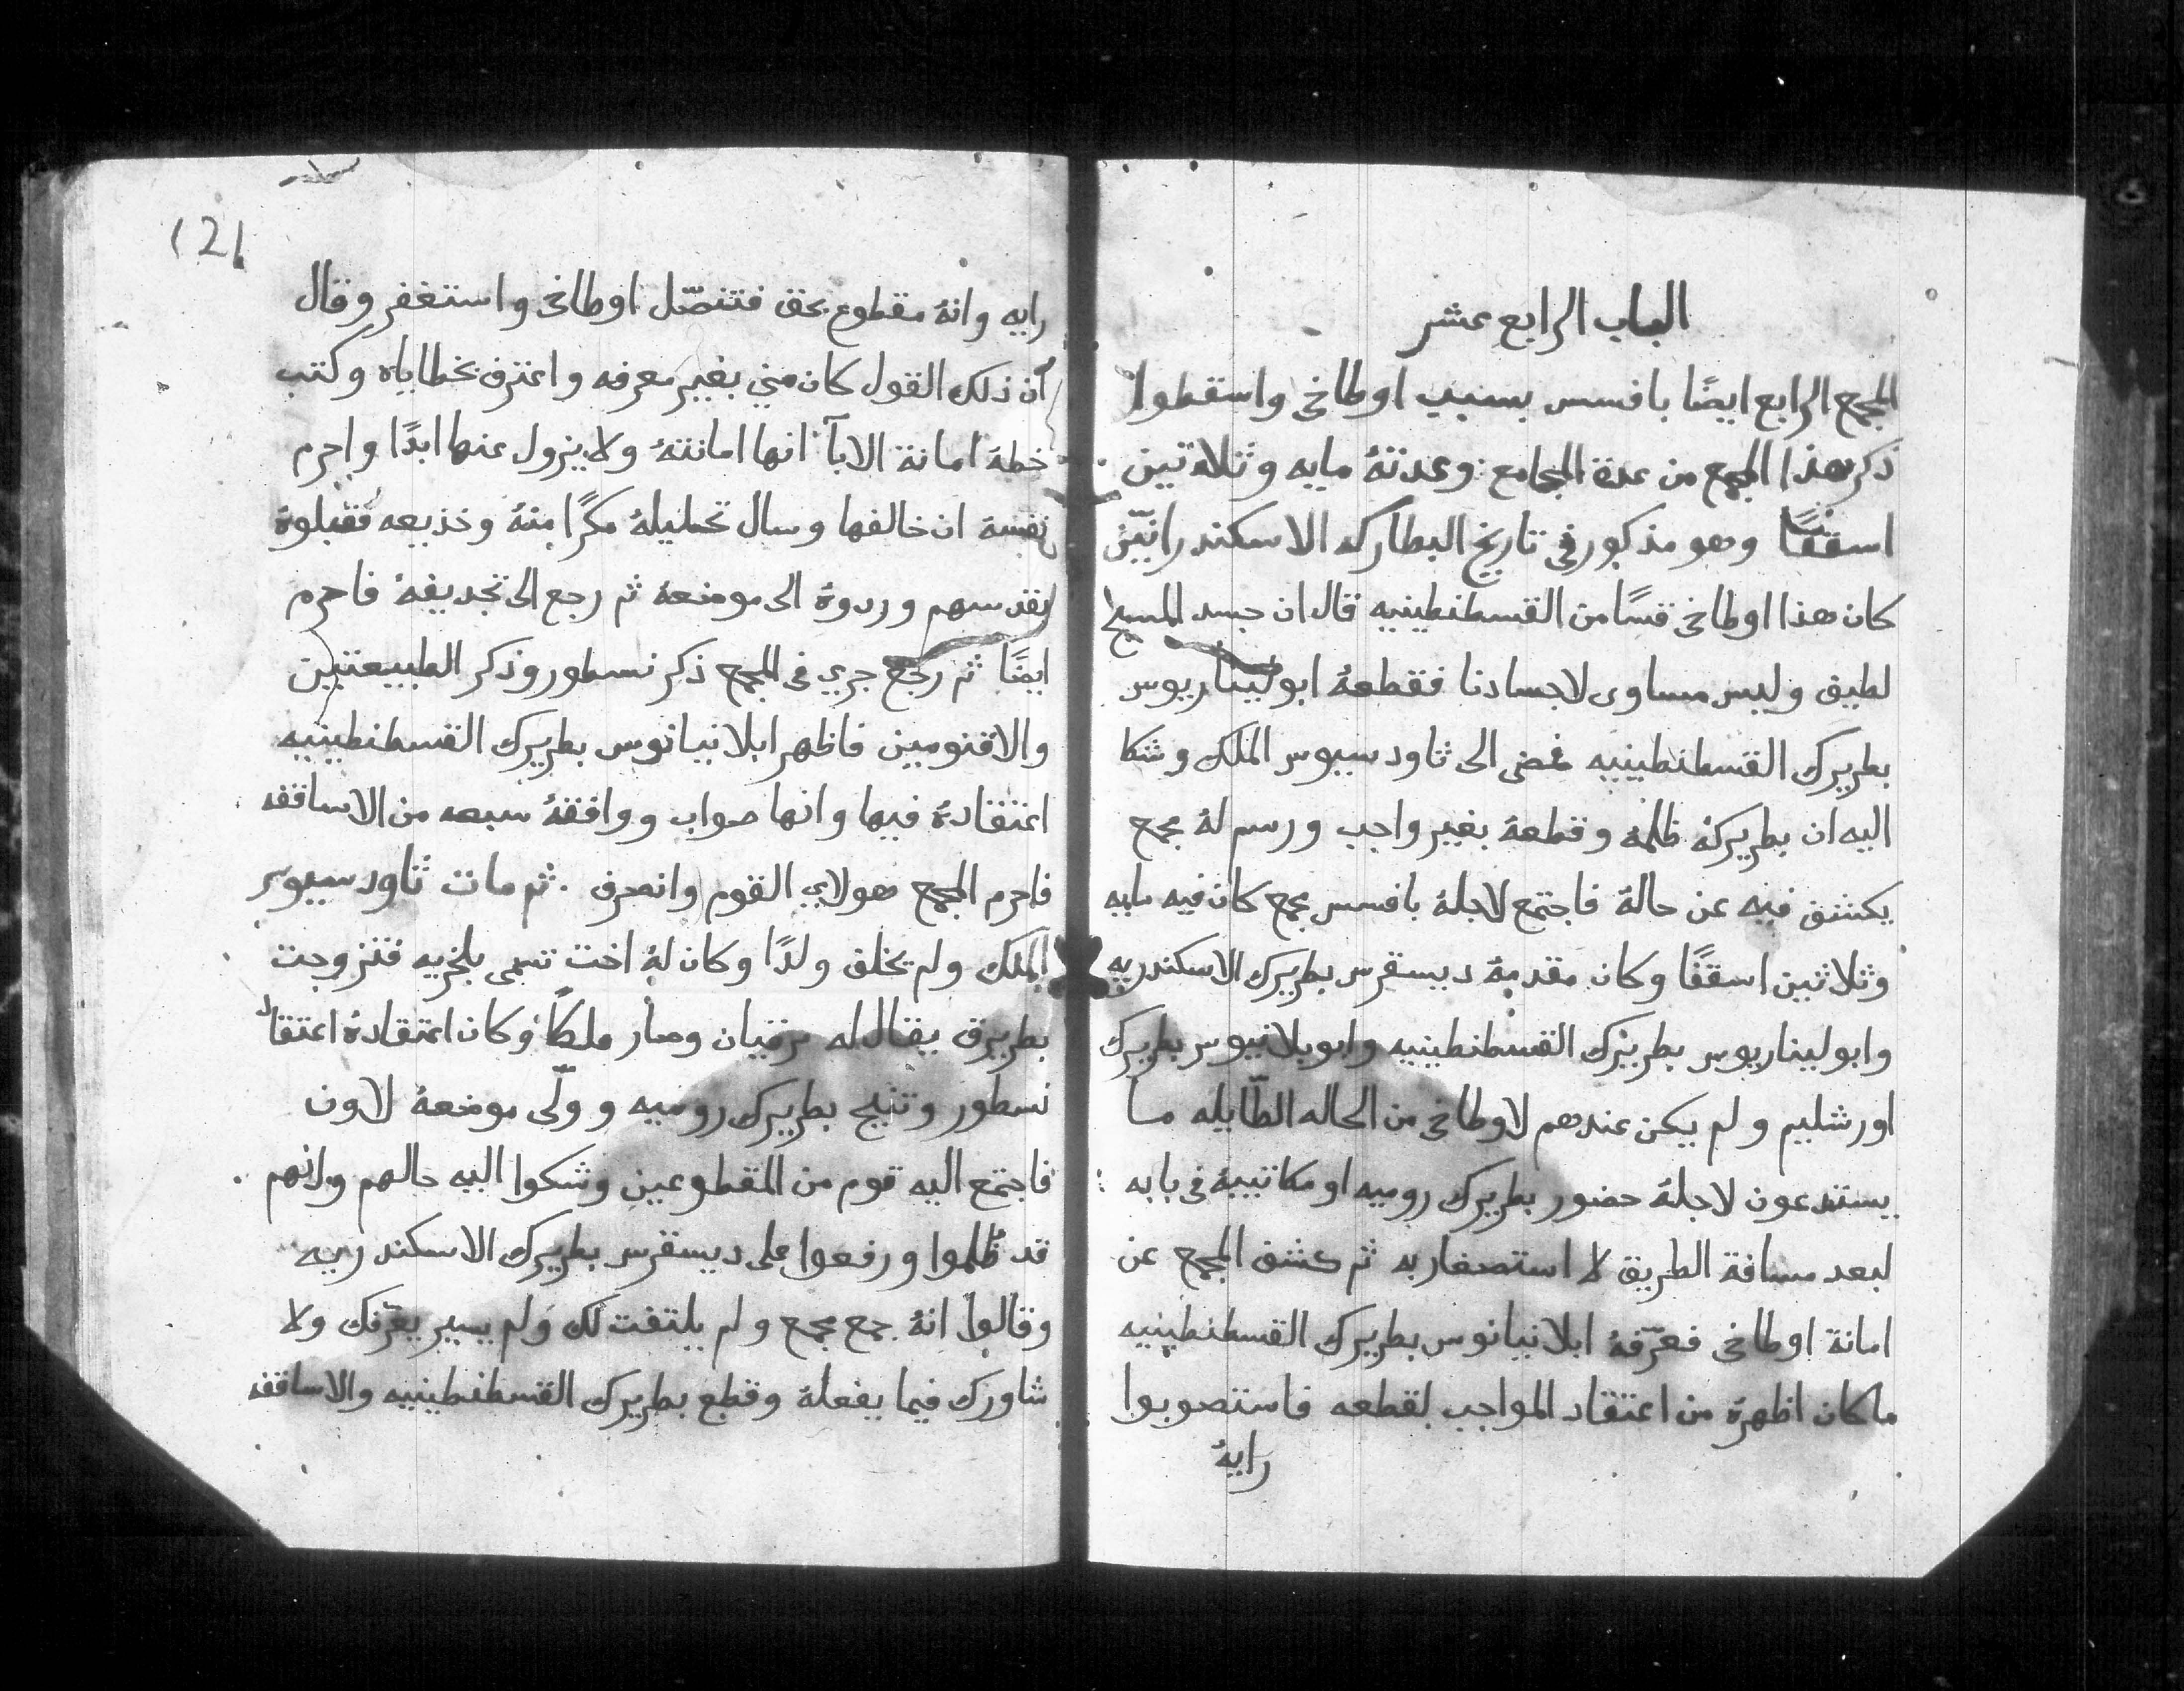 الباب الرابع عشر
المجمع الرابع ايضًا بافسس بسبب اوطاخي واسقطوا
ذكر هذا المجمع من عدة المجامع وعدتهُ مايه وثلاثين
اسقفًا وهو مذكور في تاريخ البطاركه الاسكندرانيّين
كان هذا اوطاخي قسًا من القسطنطينيه قال ان جسد المسيح
لطيف وليس مساوى لاجسادنا فقطعهُ ابوليناريوس
بطريرك القسطنطينيه فمضى الى ثاودسيوس الملك وشكا
اليه ان بطريركهُ ظلمهُ وقطعهُ بغير واجب ورسم لهُ مجمع
يكشف فيه عن حالهُ فاجتمع لاجلهُ بافسس مجمع كان فيه مايه
وثلاثين اسقفًا وكان مقدمهُ ديسقرس بطريرك الاسكندريه
وابوليناريوس بطريرك القسطنطينيه وابوبلانيوس بطريرك
اورشليم ولم يكن عندهم لاوطاخي من الحاله الطّايله ما
يستدعون لاجلهُ حضور بطريرك روميه او مكاتبيهُ في بابه
لبعد مسافة الطريق لا استصغار به ثم كشف المجمع عن
امانة اوطاخي فعرّفهُ ابلانيانوس بطريرك القسطنطينيه
ما كان اظهرهُ من اعتقاد المواجب لقطعه فاستصوبوا
رايهُ
121
رايه وانهُ مقطوع بحق فتنصّل اوطاخي واستغفر وقال
ان ذلك القول كان مني بغير معرفه واعترف بخطاياه وكتب
خطهُ امانة الابآ انها امانتهُ ولا يزول عنها ابدًا واحرم
نفسهُ ان خالفها وسال تحليلهُ مكرًا منهُ وخديعه فقبلوهُ
بقدسهم وردوهُ الى موضعهُ ثم رجع الى تجديفهُ فاحرم
ايضًا ثم رجع جري في المجمع ذكر نسطور وذكر الطبيعتين
والاقنومين فاظهر ابلانيانوس بطريرك القسطنطينيه
اعتقادهُ فيها وانها صواب ووافقهُ سبعه من الاساقفه
فاحرم المجمع هولاي القوم وانصرف . ثم مات ثاودسيوس
الملك ولم يخلف ولدًا وكان لهُ اخت تسمى بلخريه فتزوجت
بطريرق يقال له مرقيان وصار ملكًا وكان اعتقادهُ اعتقاد
نسطور وتنيح بطريرك روميه وولّى موضعهُ لاون
فاجتمع اليه قوم من المقطوعين وشكوا اليه حالهم وانهم
قد ظُلموا ورفعوا على ديسقرس بطريرك الاسكندريه
وقالوا انهُ جمع مجمع ولم يلتفت لك ولم يسير يعرّفك ولا
شاورك فيما يفعلهُ وقطع بطريرك القسطنطينيه والاساقفه